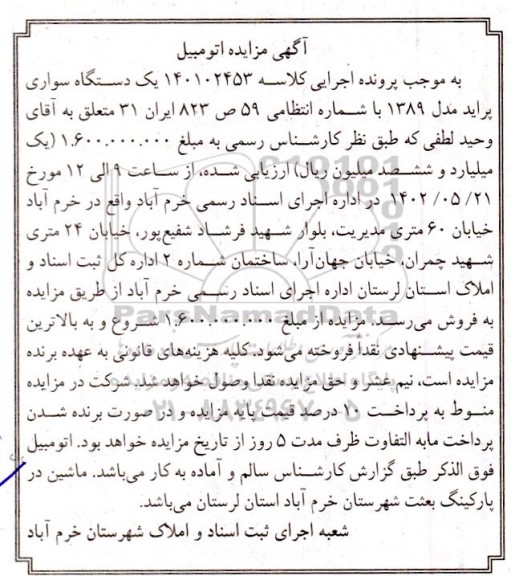 آگهی مزایده اتومبیل
به موجب پرونده اجرایی کلاسه ۱۴۰۱۰۲۴۵۳ یک دستگاه سواری
پراید مدل ۱۳۸۹ با شماره انتظامی ۵۹ ص ۸۲۳ ایران ۳۱ متعلق به آقای
وحید لطفی که طبق نظر کارشناس رسمی به مبلغ ۱.۶۰۰.۰۰۰.۰۰۰ (یک
میلیارد و ششصد میلیون ریال) ارزیابی شده، از ساعت ۹ الی ۱۲ مورخ
۲۱/ ۰۵/ ۱۴۰۲ در اداره اجرای اسناد رسمی خرم آباد واقع در خرم آباد
خیابان ۶۰ متری مدیریت، بلوار شهید فرشاد شفیع‌پور، خیابان ۲۴ متری
شهید چمران، خیابان جهان‌آرا، ساختمان شماره ۲ اداره کل ثبت اسناد و
املاک استان لرستان اداره اجرای اسناد رسمی خرم آباد از طریق مزایده
به فروش می‌رسد. مزایده از مبلغ ۱,۶۰۰,۰۰۰,۰۰۰ شروع و به بالاترین
قیمت پیشنهادی نقداً فروخته می‌شود. کلیه هزینه‌های قانونی به عهده برنده
مزایده است، نیم عشر و حق مزایده نقدا وصول خواهد شد. شرکت در مزایده
منوط به پرداخت ۱۰ درصد قیمت پایه مزایده و در صورت برنده شدن
پرداخت مابه التفاوت ظرف مدت ۵ روز از تاریخ مزایده خواهد بود. اتومبیل
فوق الذکر طبق گزارش کارشناس سالم و آماده به کار می‌باشد. ماشین در
پارکینگ بعثت شهرستان خرم آباد استان لرستان می‌باشد.
شعبه اجرای ثبت اسناد و املاک شهرستان خرم آباد
ParsNamadData